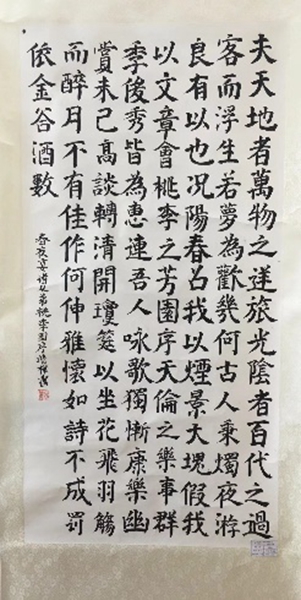 夫天地者萬物之逆旅光陰者百代之過
客而浮生若夢為歡幾何古人秉燭夜游
良有以也况陽春召我以煙景大塊假我
以文章會桃李之芳園序天倫之樂事群
季俊秀皆為惠連吾人咏歌獨慚康樂幽
賞未已高談轉清開瓊筵以坐花飛羽觴
而醉月不有佳作何伸雅懷如詩不成罰
依金谷酒數
春夜宴諸從弟桃李園序